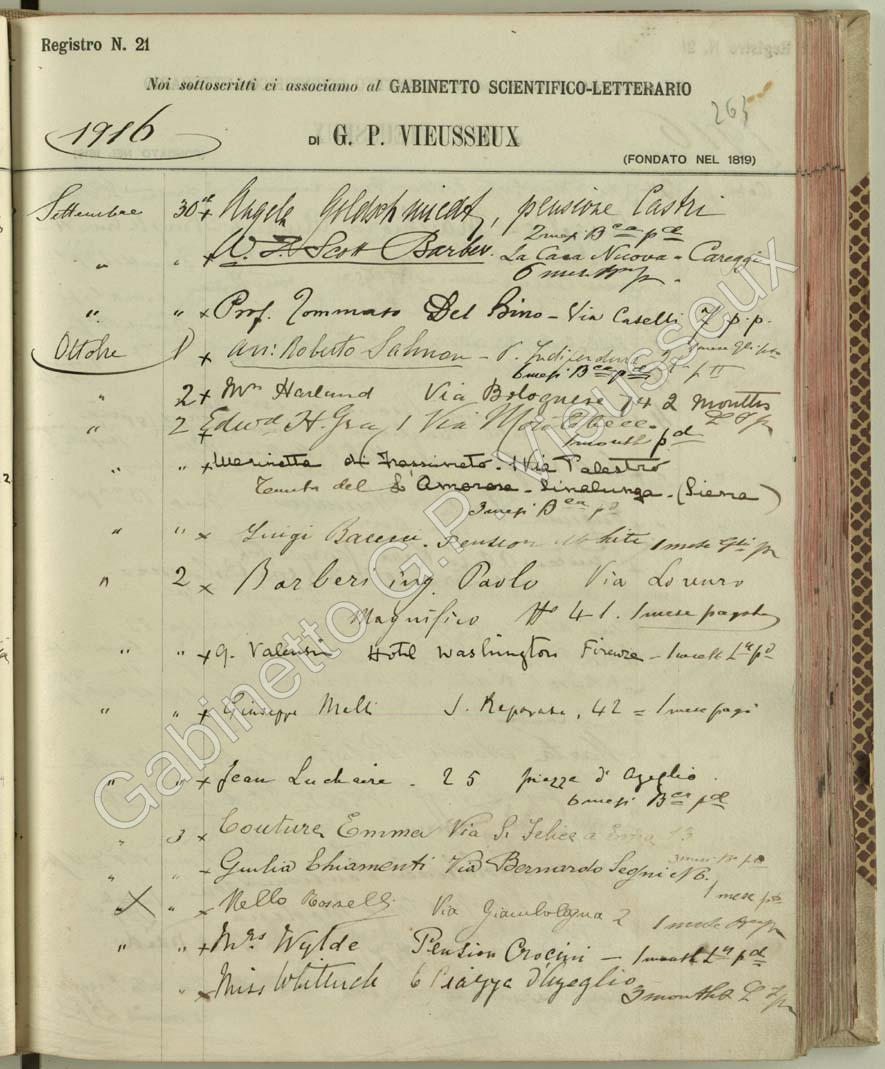 Registro N. 21
Noi sottoscritti ci associamo al GABINETTO SCIENTIFICO-LETTERARIO
263
1916
DI G. P. VIEUSSEUX
(FONDATO NEL 1819)
Settembre 30 + Angela Goldschmiedt, pensione Castri
2 mesi B pd
" " + W. F. Scott Barber. La Casa Nuova - Careggi
6 mesi
" " + Prof. Tommaso Del Bino - Via Caselli 7 p.p.
Ottobre 1 + Roberto Salmon - P. Indipendenza
6 mesi B pd
" 2 + Mrs Harland Via Bolognese 74 2 months
" 2 + Edwd H. Gray 1 Via
1 month pd
" " + Marinetta di Frassineto. 1 Via Palestro
Tenuta del S. Amorosa - Sinalunga - (Siena)
3 mesi B pd
" " x Luigi - Pension White 1 mese
" 2 x Barbers ing. Paolo Via Lorenzo
Magnifico No 41. 1 mese pagato
" " + G. Valensin Hotel Washington Firenze - 1 month pd
" " + Giuseppe Melli S. Reparata, 42 = 1 mese
" " + Jean Luchaire - 25 piazza d'Azeglio.
6 mesi B pd
" 3 x Couture Emma Via S. Felice a Ema 13
3 mesi
" " x Giulia Chiamenti Via Bernardo Segni 16.
1 mese
" " x Nello Rosselli Via Giambologna 2 1 mese
" " + Mrs Wylde Pension Crocini - 1 month pd
" x Miss Whittuck 6 Piazza d'Azeglio 3 months
Gabinetto G.P. Vieusseux